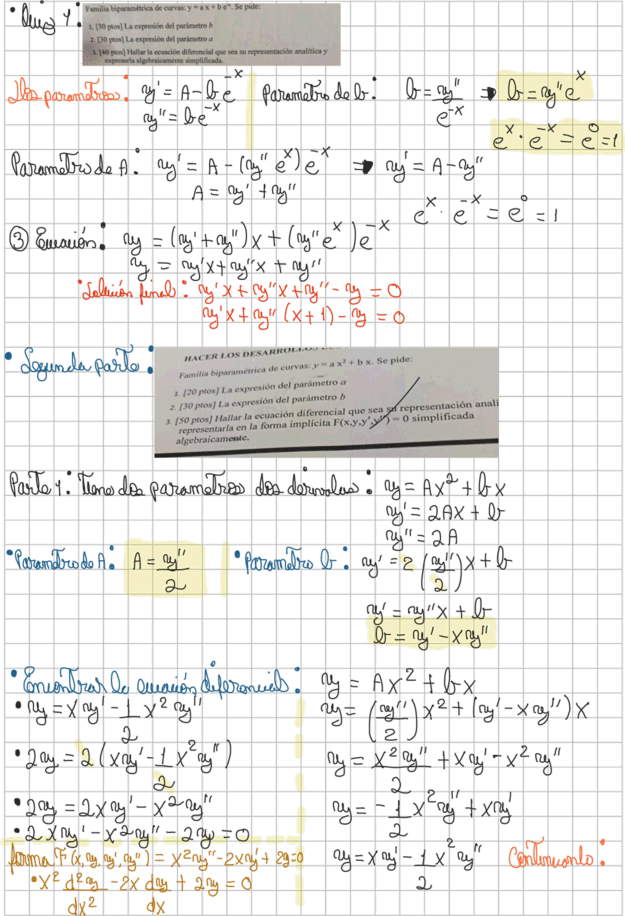 • Quiz 4:
Familia biparamétrica de curvas: y = a x + b e⁻ˣ. Se pide:
1. [30 ptos] La expresión del parámetro b
2. [30 ptos] La expresión del parámetro a
3. [40 ptos] Hallar la ecuación diferencial que sea su representación analítica y
expresarla algebraicamente simplificada.
Dos parametros: y' = A - be⁻ˣ
y'' = be⁻ˣ
Parametro de b: b = y''/e⁻ˣ ⇒ b = y''eˣ
eˣ · e⁻ˣ = e⁰ = 1
Parametro de A: y' = A - (y'' eˣ) e⁻ˣ → y' = A - y''
A = y' + y''
eˣ · e⁻ˣ = e⁰ = 1
③ Ecuación: y = (y' + y'')x + (y'' eˣ) e⁻ˣ
y = y'x + y''x + y''
• Solución final: y'x + y''x + y'' - y = 0
y'x + y''(x+1) - y = 0
• Segunda parte:
HACER LOS DESARROLL
Familia biparamétrica de curvas: y = a x² + b x. Se pide:
1. [20 ptos] La expresión del parámetro a
2. [30 ptos] La expresión del parámetro b
3. [50 ptos] Hallar la ecuación diferencial que sea su representación anali
representarla en la forma implícita F(x,y,y',y'') = 0 simplificada
algebraicamente.
Parte 1: Tiene dos parametros dos derivadas: y = Ax² + bx
y' = 2Ax + b
y'' = 2A
• Parametro de A: A = y''/2
• Parametro b: y' = 2 (y''/2) x + b
y' = y''x + b
b = y' - xy''
• Encontrar la ecuación diferencial: y = Ax² + bx
y = (y''/2) x² + (y' - xy'') x
y = x²y''/2 + xy' - x²y''
y = -1/2 x²y'' + xy'
y = xy' - 1/2 x²y'' Continuando:
• y = xy' - 1/2 x²y''
• 2y = 2(xy' - 1/2 x²y'')
• 2y = 2xy' - x²y''
• 2xy' - x²y'' - 2y = 0
forma F(x, y, y', y'') = x²y'' - 2xy' + 2y = 0
• x² d²y/dx² - 2x dy/dx + 2y = 0